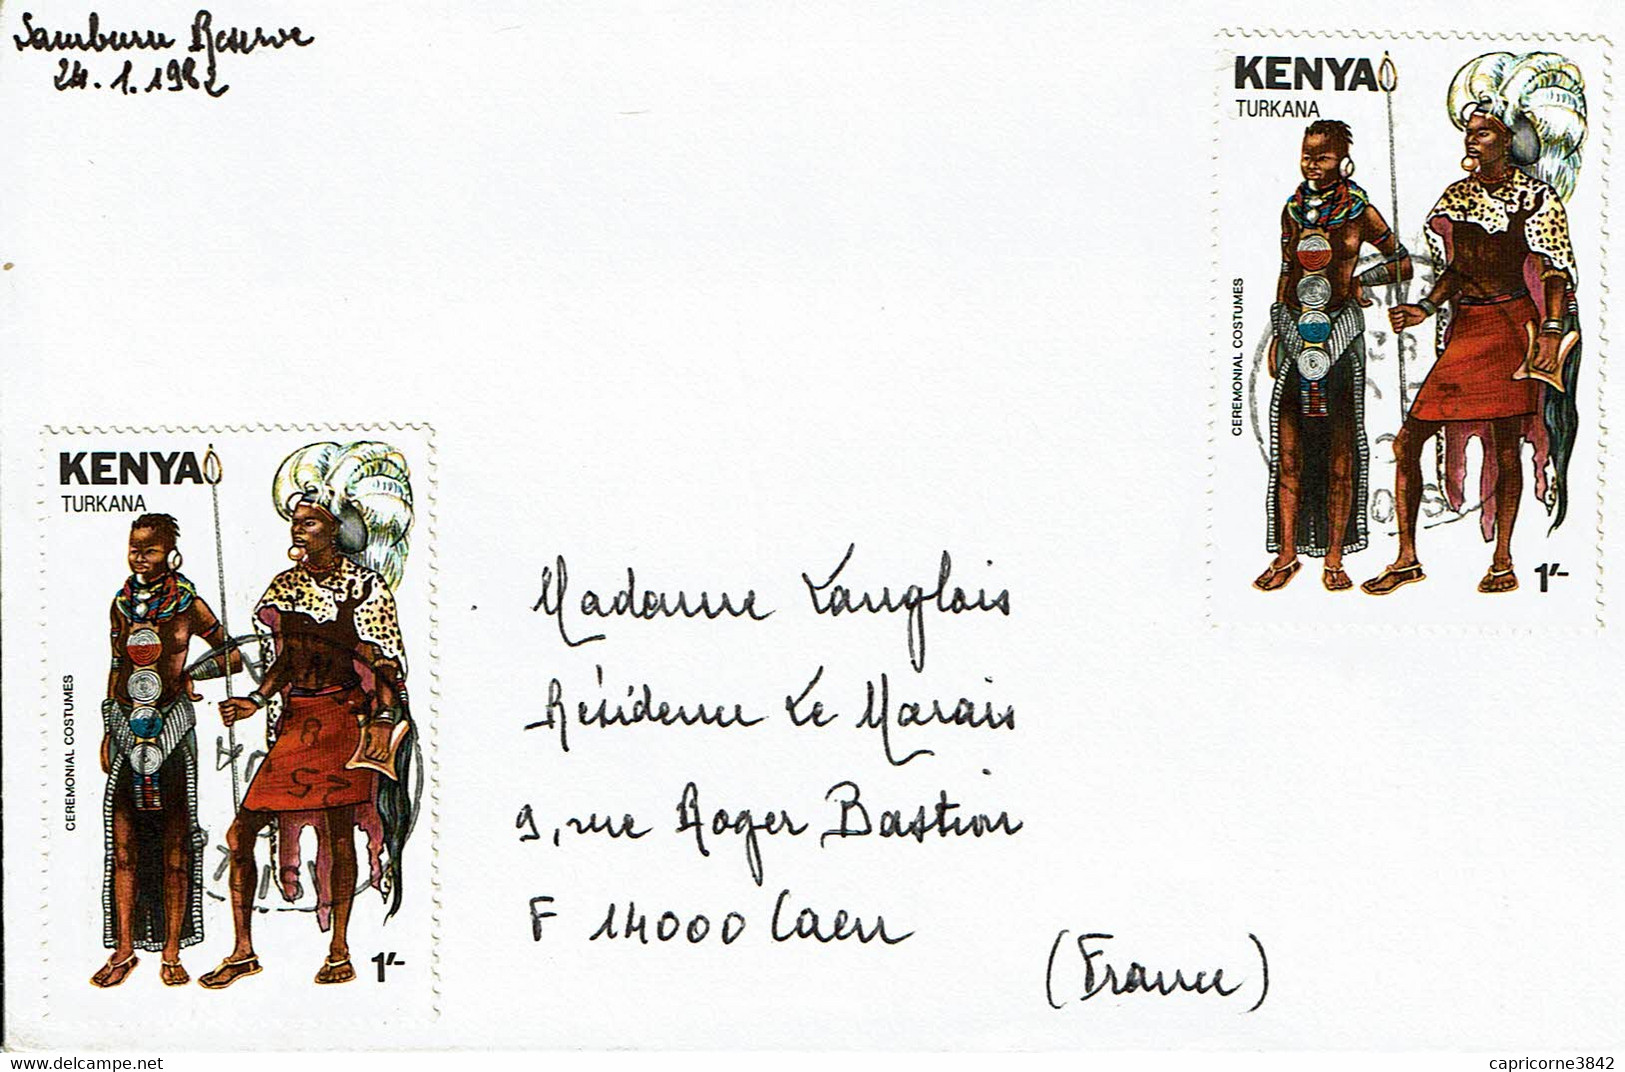 Samburu Reserve
24.1.1982
KENYA
TURKANA
CEREMONIAL COSTUMES
1/-
KENYA
TURKANA
CEREMONIAL COSTUMES
1/-
Madame Langlois
Résidence Le Marais
9, rue Roger Bastion
F 14000 Caen
(France)
https://www.delcampe.net
capricorne3842